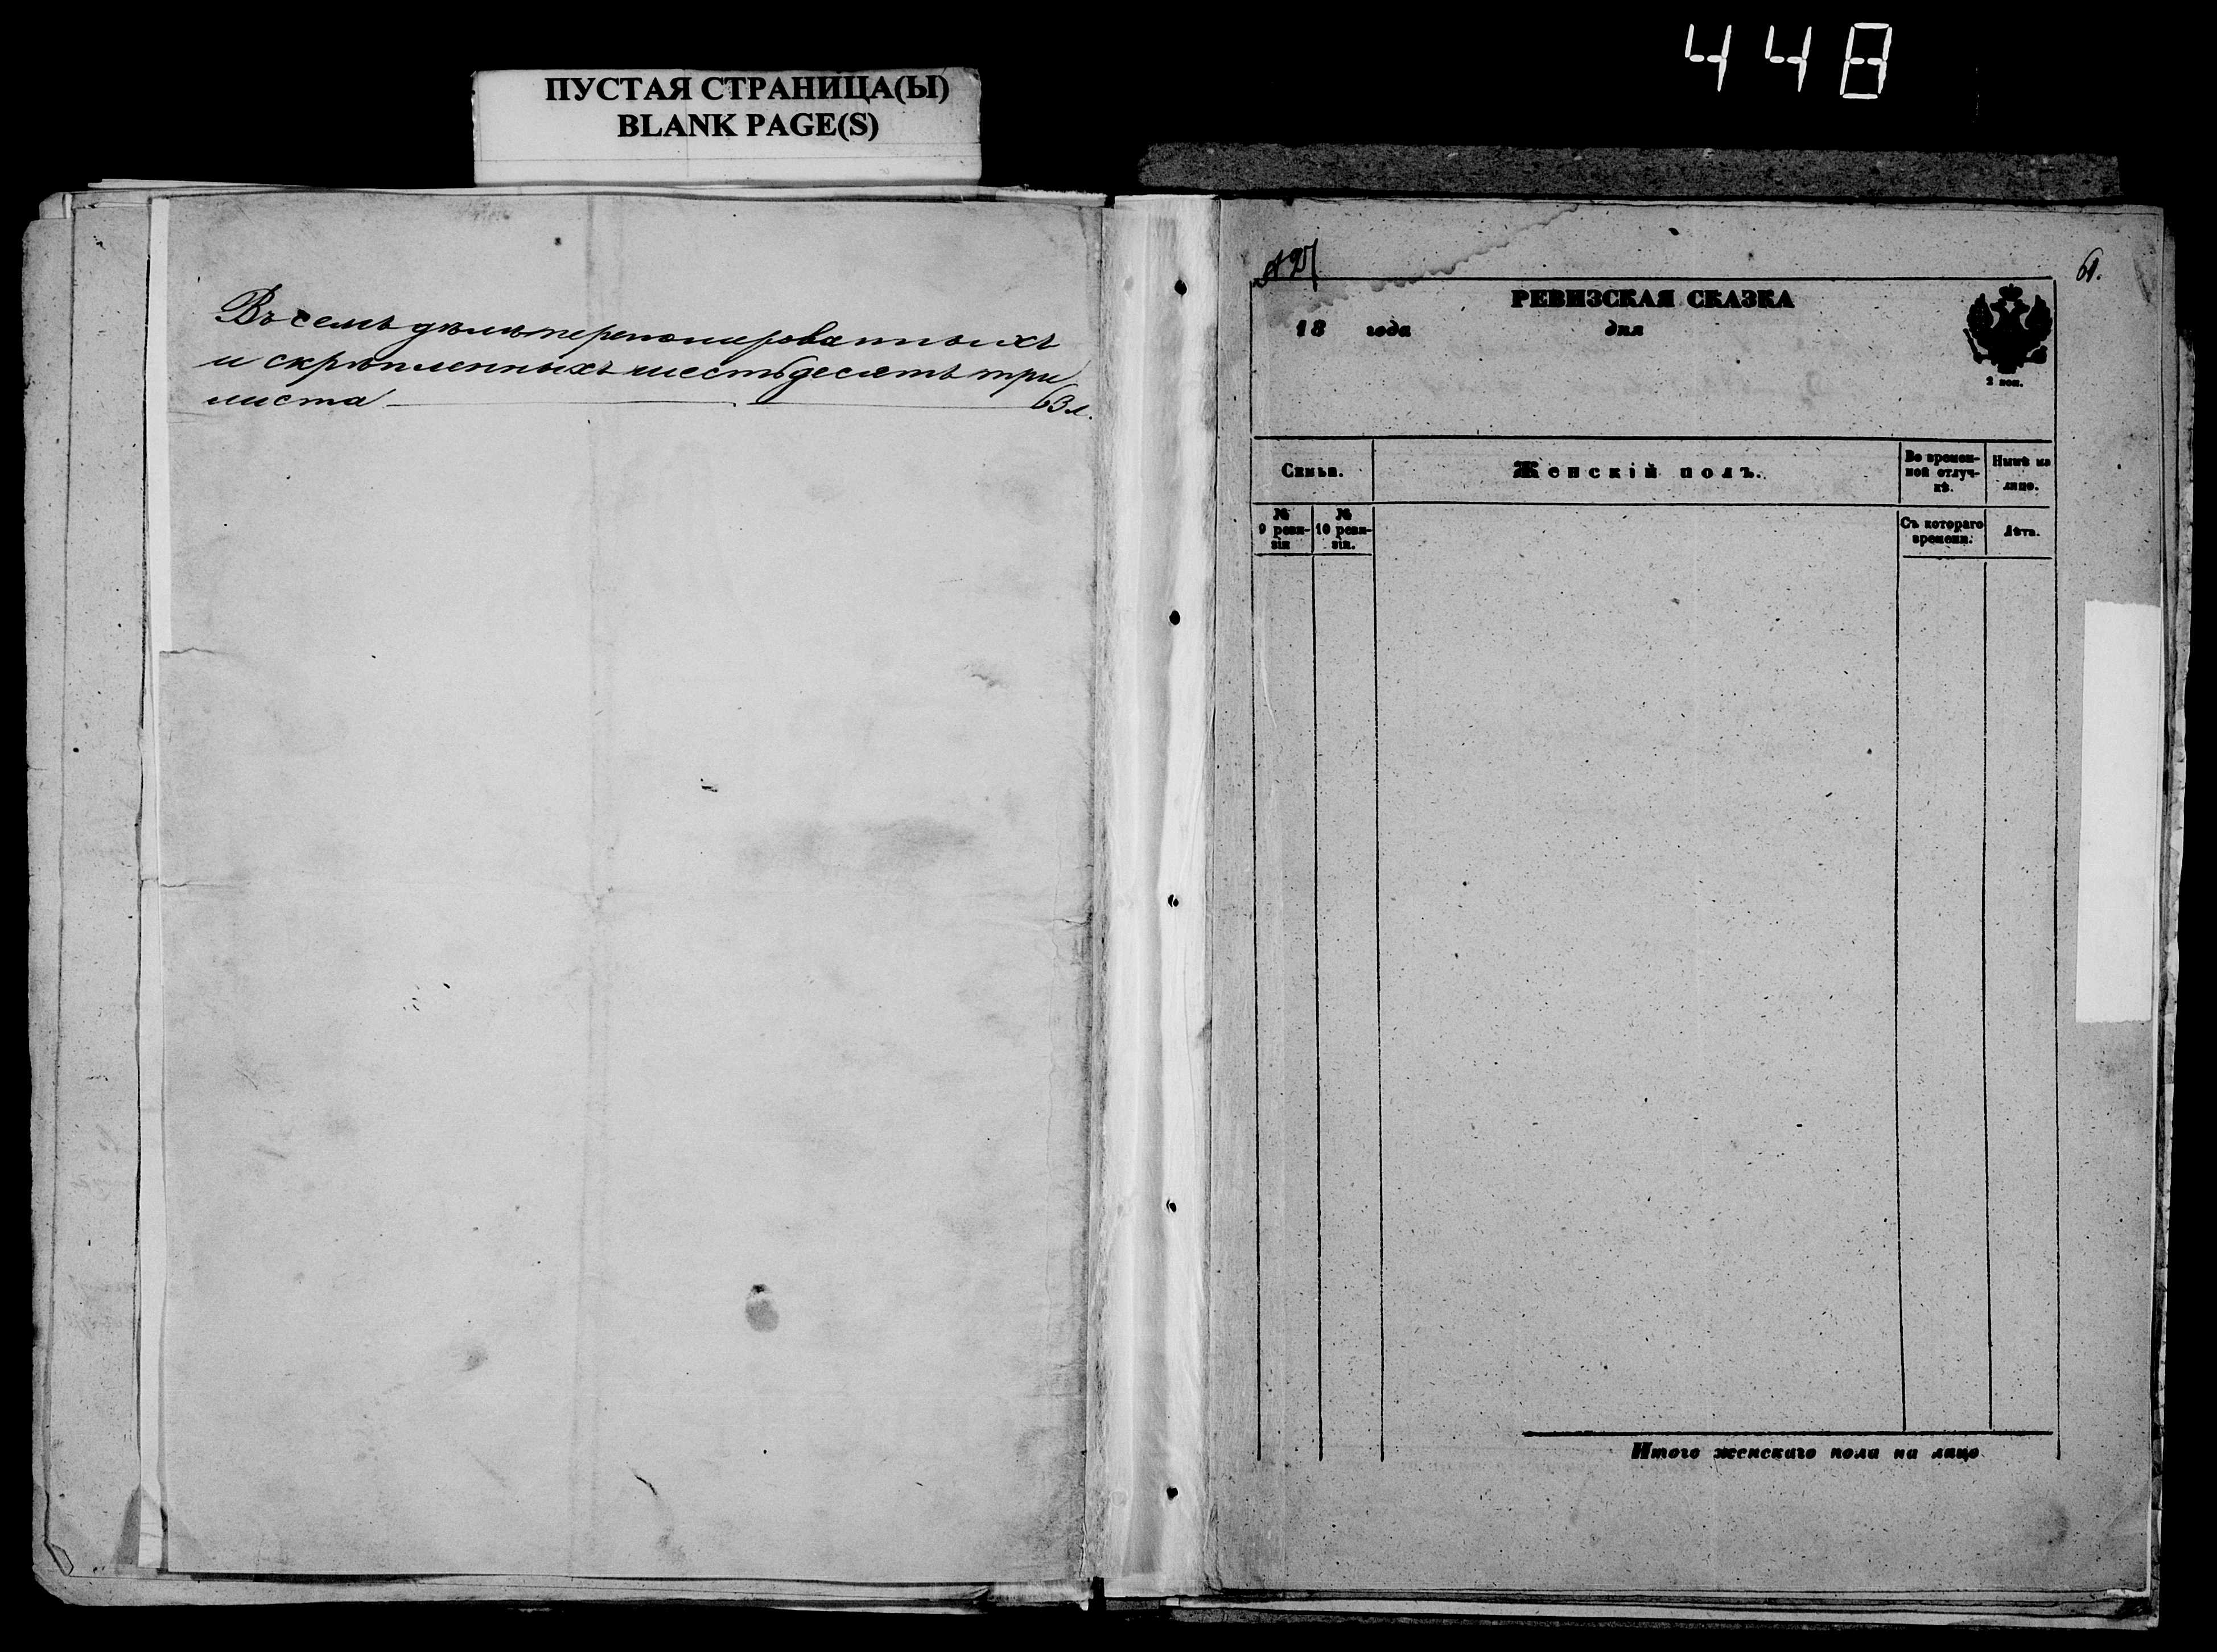 448
ПУСТАЯ СТРАНИЦА(Ы)
BLANK PAGE(S)
Въ семъ дѣлѣ перенумерованныхъ
и скрѣпленныхъ шестьдесятъ три
листа 63 л.
61.
РЕВИЗСКАЯ СКАЗКА
18 года дня
2 коп.
Семьи.
Женскій полъ.
Во времен-
ной отлуч-
кѣ.
Нынѣ на
лицо.
№
9 реви-
зіи
№
10 реви-
зіи.
Съ котораго
времени.
Лѣта.
Итого женскаго пола на лицо